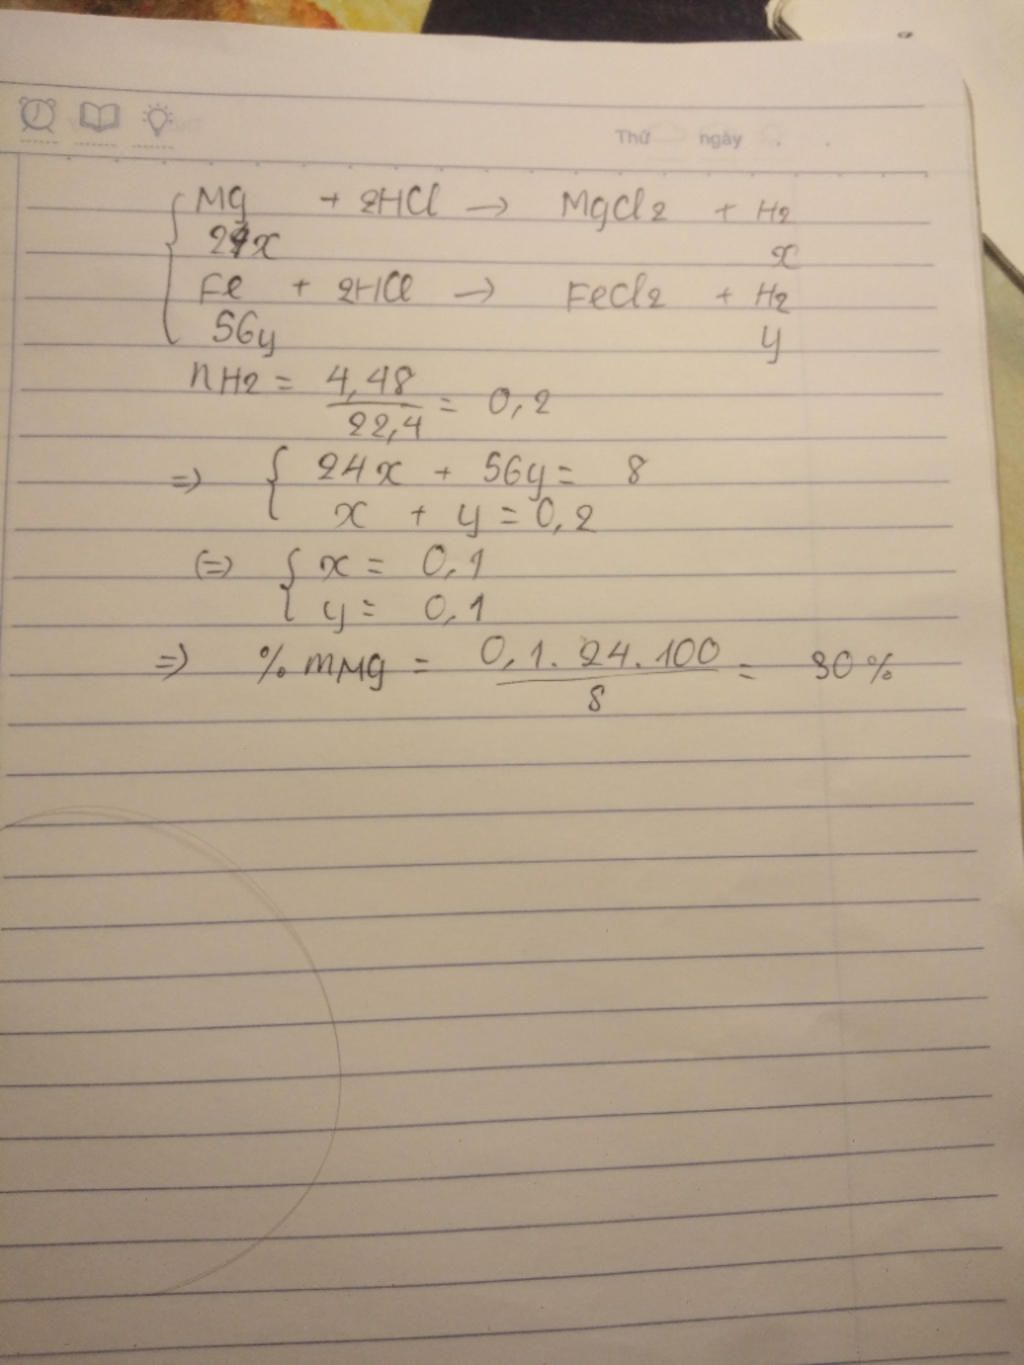 Thứ ngày
Mg + 2HCl → MgCl2 + H2
24x x
Fe + 2HCl → FeCl2 + H2
56y y
nH2 = 4,48 / 22,4 = 0,2
=> { 24x + 56y = 8
x + y = 0,2
(=) { x = 0,1
y = 0,1
=) % mMg = 0,1.24.100 / 8 = 30%